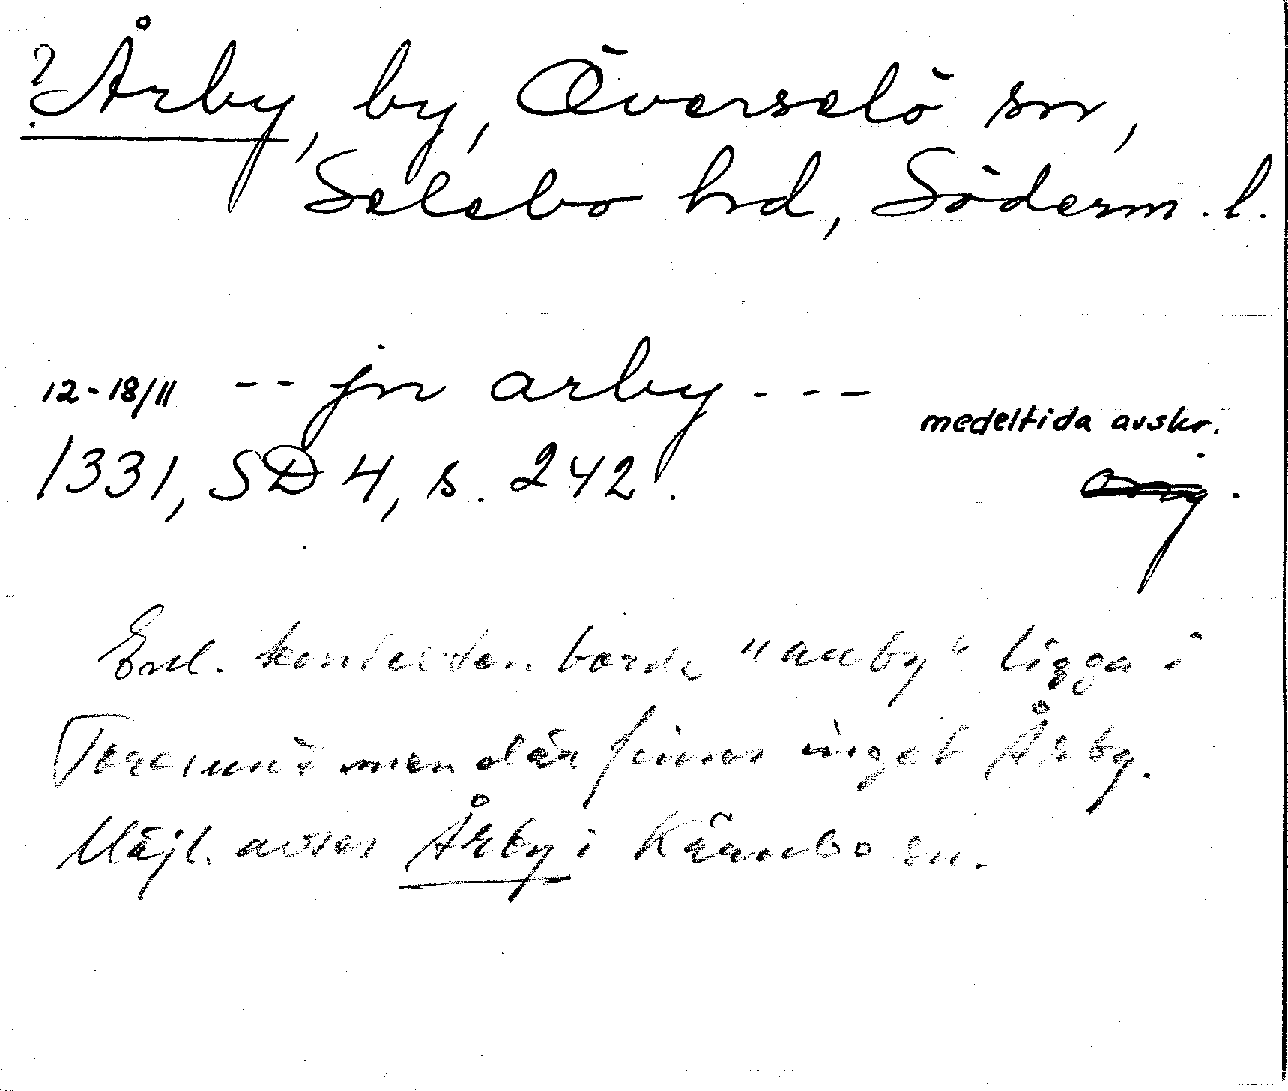 ? Årby, by, Överselö sn,
Selebo hrd, Söderm. l.
12-18/11 -- jn arby ---
medeltida avskr.
1331, SD 4, s. 242.
Enl. kontexten borde "arby" ligga i
Toresund men där finns inget Årby.
Möjl. avses Årby i Kärnbo sn.